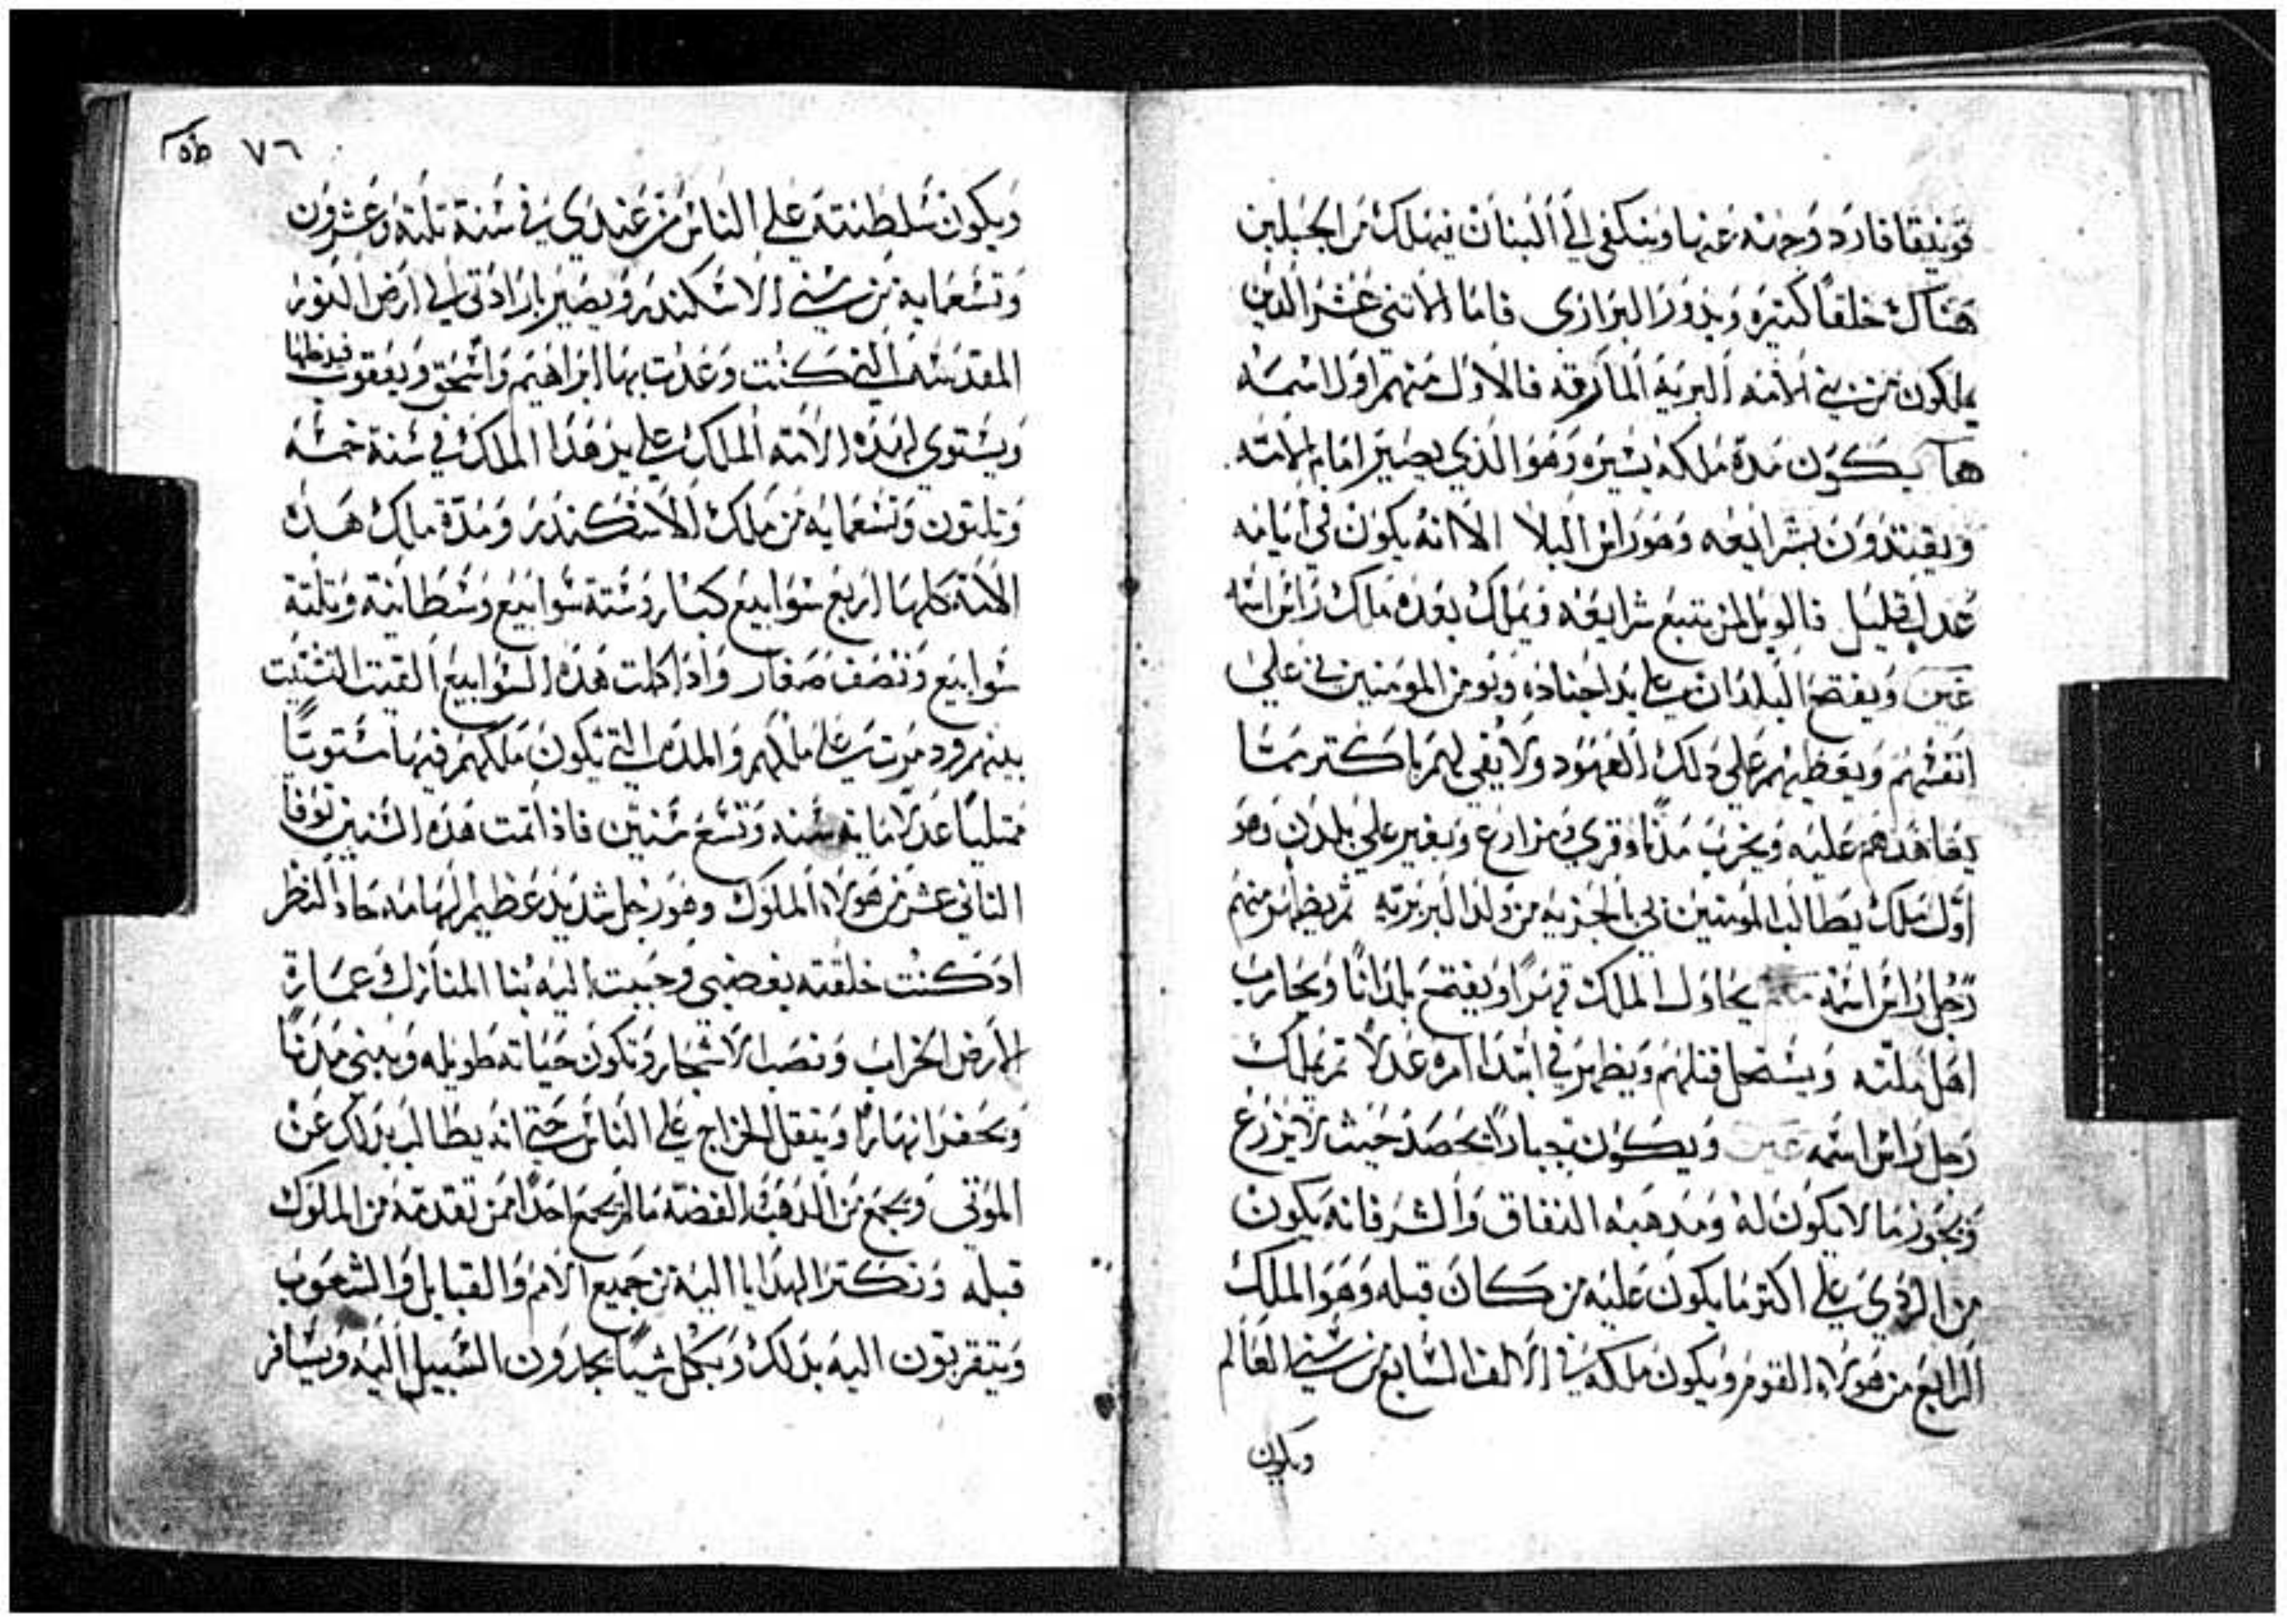 قونيقا فارد وجهه عنها وينكفي الي البنان فيهلك من الجبلين
هناك خلقًا كثيره ويدور البراري فاما الاثني عشر الدين
يملكون من بني الامه البريه المارقه فالاول منهم اول اسمه
ها يكون مدة ملكه يسيره وهو الذي يصير امام لامته
ويقتدون بشرايعه وهو راس البلا الا انه يكون في ايامه
عدل قليل فالويل لمن يتبع شرايعه ويملك بعده ملك راس اسمه
عين ويفتح البلدان علي يد اجناده ويومن المومنين بي علي
انفسهم ويعطيهم علي دلك العهود ولا يفي لهم باكتر مما
يعاهدهم عليه ويخرب مدنًا وقري ومزارع ويغير علي بلدن وهو
اول ملك يطالب المومنين بي بالجزيه من ولد البربريه ثم يظهر منهم
رجل راس اسمه يحاول الملك قهرًا ويفتح بلدانًا ويحارب
اهل ملته ويستحل قتلهم ويظهر في ابتدا امره عدلا تم يملك
رجل راس اسمه عين ويكون جبارًا يحصد حيث لا يزرع
ويحوز ما لا يكون له ومدهبه النفاق والشر فانه يكون
من الردي علي اكتر ما يكون عليه من كان قبله وهو الملك
الرابع من هولاء القوم ويكون ملكه في الالف السابع من سني العالم
ويكون
٧٦
ويكون سلطنته علي الناس من عندي في سنة تلته وعشرون
وتسعمايه من سني الاسكندر ويصير بارادتي الي ارض النور
المقدسه التي كنت وعدت بها ابراهيم واسحق ويعقوب
ويستوي لهده الامه الملك علي يد هدا الملك في سنة خمسه
وتلتون وتسعمايه من ملك الاسكندر ومدة ملك هده
الامه كلها اربع سوابيع كبار وستة سوابيع وسطانيه وتلتة
سوابيع ونصف صغار وادا كملت هده السوابيع القيت التشتيت
بينهم علي ملكهم والمده التي يكون ملكهم فيها مستويًا
ممتليًا عدلا مايه سنه وتسع سنين فادا تمت هده السنين توفا
التاني عشر من هولاء الملوك وهو رجل شديد عظيم الهامه حاد النظر
اد كنت خلقته بغضبي وحببت اليه بنا المنازل وعمارة
الارض الخراب ونصب الاشجار وتكون حياته طويله ويبني مدنًا
ويحفر انهارًا ويتقل الخراج علي الناس حتي انه يطالب بدلك عن
الموتي ويجمع من الدهب والفضه ما لم يجمع احدًا ممن تقدمه من الملوك
قبله وتكتر الهدايا اليه من جميع الامم والقبايل والشعوب
ويتقربون اليه بدلك وبكل شيًا يجدون السبيل اليه ويسافر